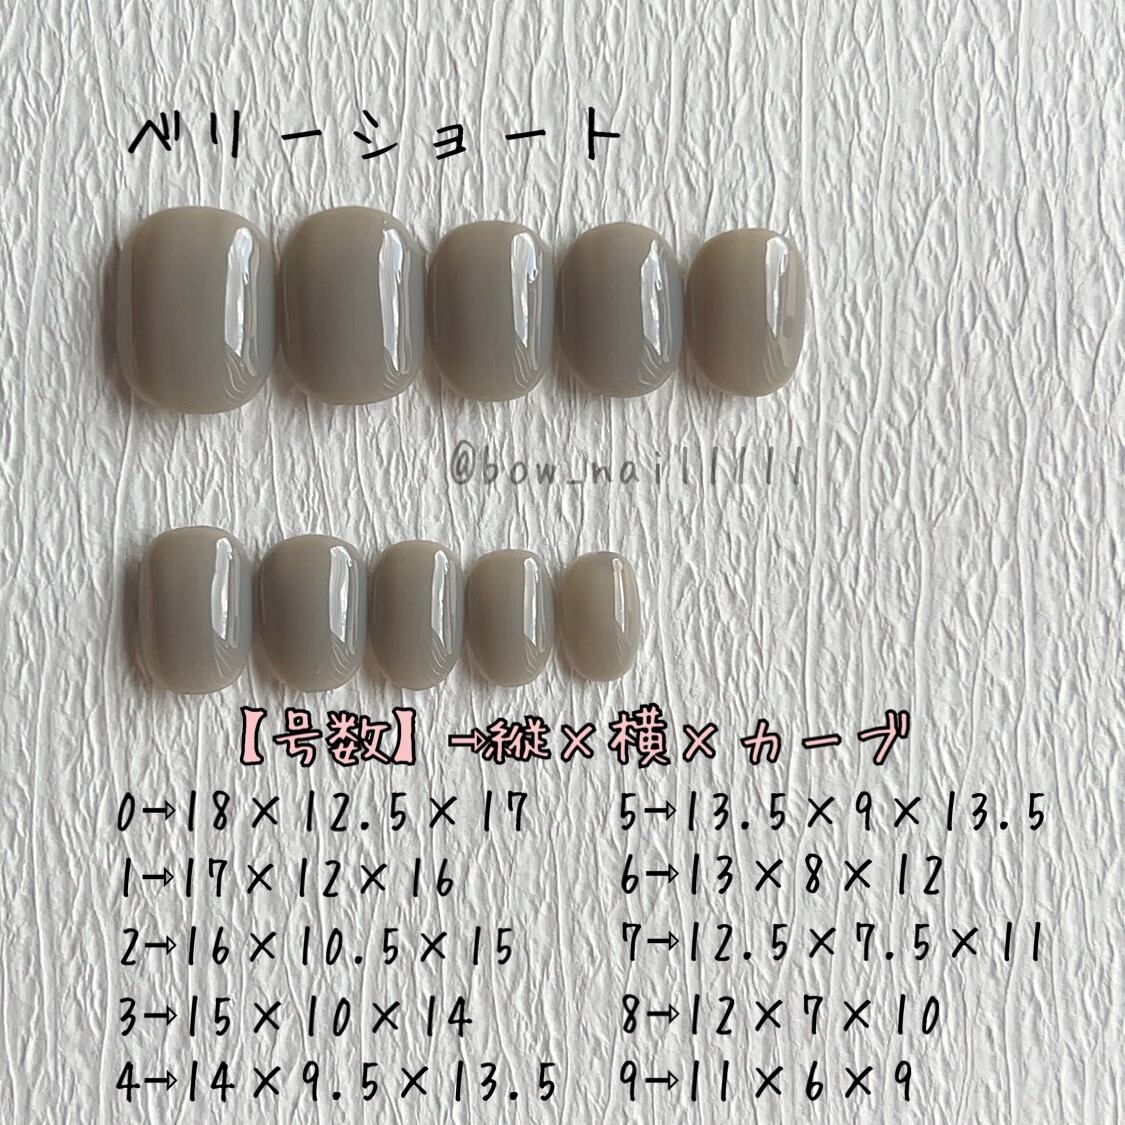 ベリーショート
@bow_nail1111
【号数】→縦×横×カーブ
0→18×12.5×17
1→17×12×16
2→16×10.5×15
3→15×10×14
4→14×9.5×13.5
5→13.5×9×13.5
6→13×8×12
7→12.5×7.5×11
8→12×7×10
9→11×6×9